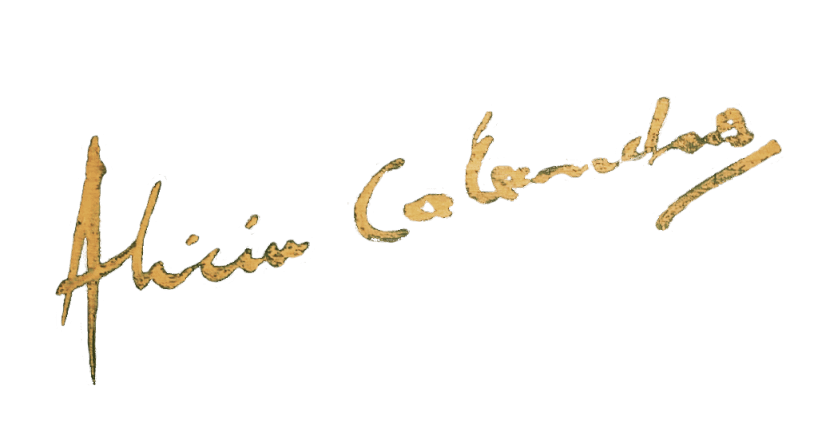 Alicia Calandra